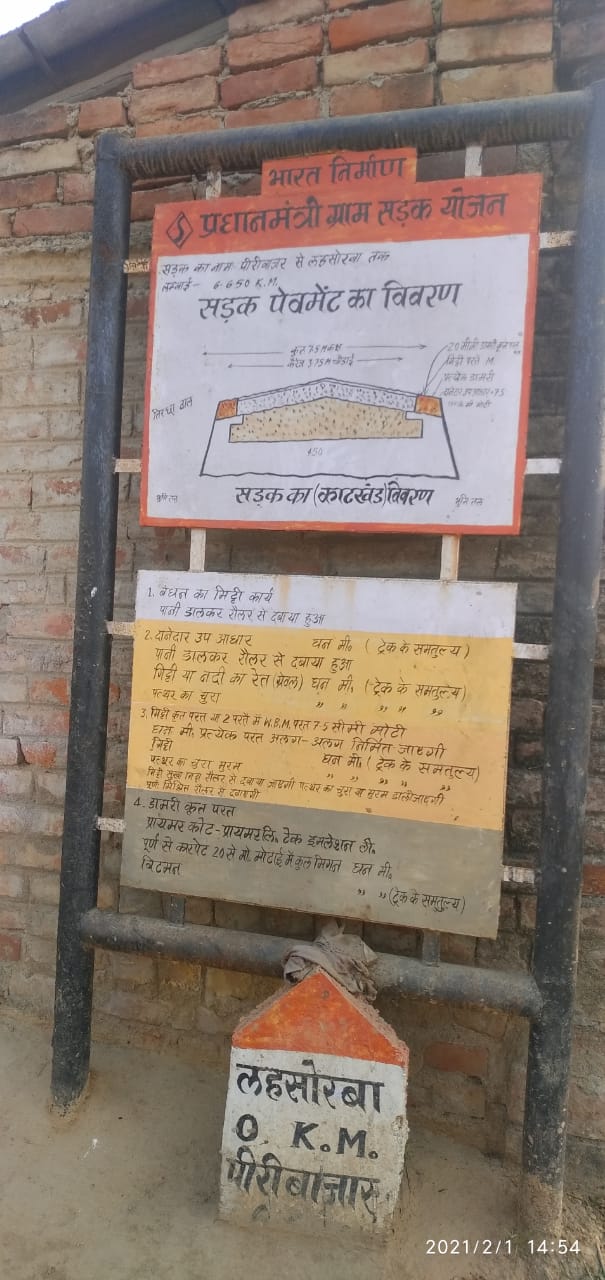 भारत निर्माण
प्रधानमंत्री ग्राम सड़क योजन
सड़क का नाम पीरीबाजार से लहसोरबा तक
लम्बाई- 6.650 K.M.
सड़क पेवमेंट का विवरण
कुल 7.5 M
3.75 M चौड़ाई
20
गिट्टी परत M
प्रत्येक डामरी
450
भूमि तल
सड़क का (काटखंड) विवरण
भूमि तल
1. बंधन का मिट्टी कार्य
पानी डालकर रौलर से दबाया हुआ
2. दानेदार उप आधार घन मी. ( ट्रेक के समतुल्य )
पानी डालकर रौलर से दबाया हुआ
गिट्टी या नादी का रेत (ग्रेवल) घन मी. ( ट्रेक के समतुल्य)
पत्थर का चुरा " " " "
3. गिट्टी कृत परत या 2 परते में W.B.M. परत 7.5 सीमी मोटी
घन मी. प्रत्येक परत अलग-अलग निर्मित जाएगी
गिट्टी घन मी. ( ट्रेक के समतुल्य)
पत्थर का चुरा मुरम " " " " "
गिट्टी सुखा रौलर से दबाया जाएगी पत्थर का चुरा या मुरम डाली जाएगी
पूर्ण रौलर से दबाएगी
4. डामरी कृत परत
प्रायमर कोट-प्रायमर लि. टेक इमलेशन ली.
पूर्ण से कारपेट 20 से मी. मोटाई में कुल मिगन घन मी.
बिटमन
" " (ट्रेक के समतुल्य)
लहसोरबा
0 K.M.
पीरीबाजार
2021/2/1 14:54